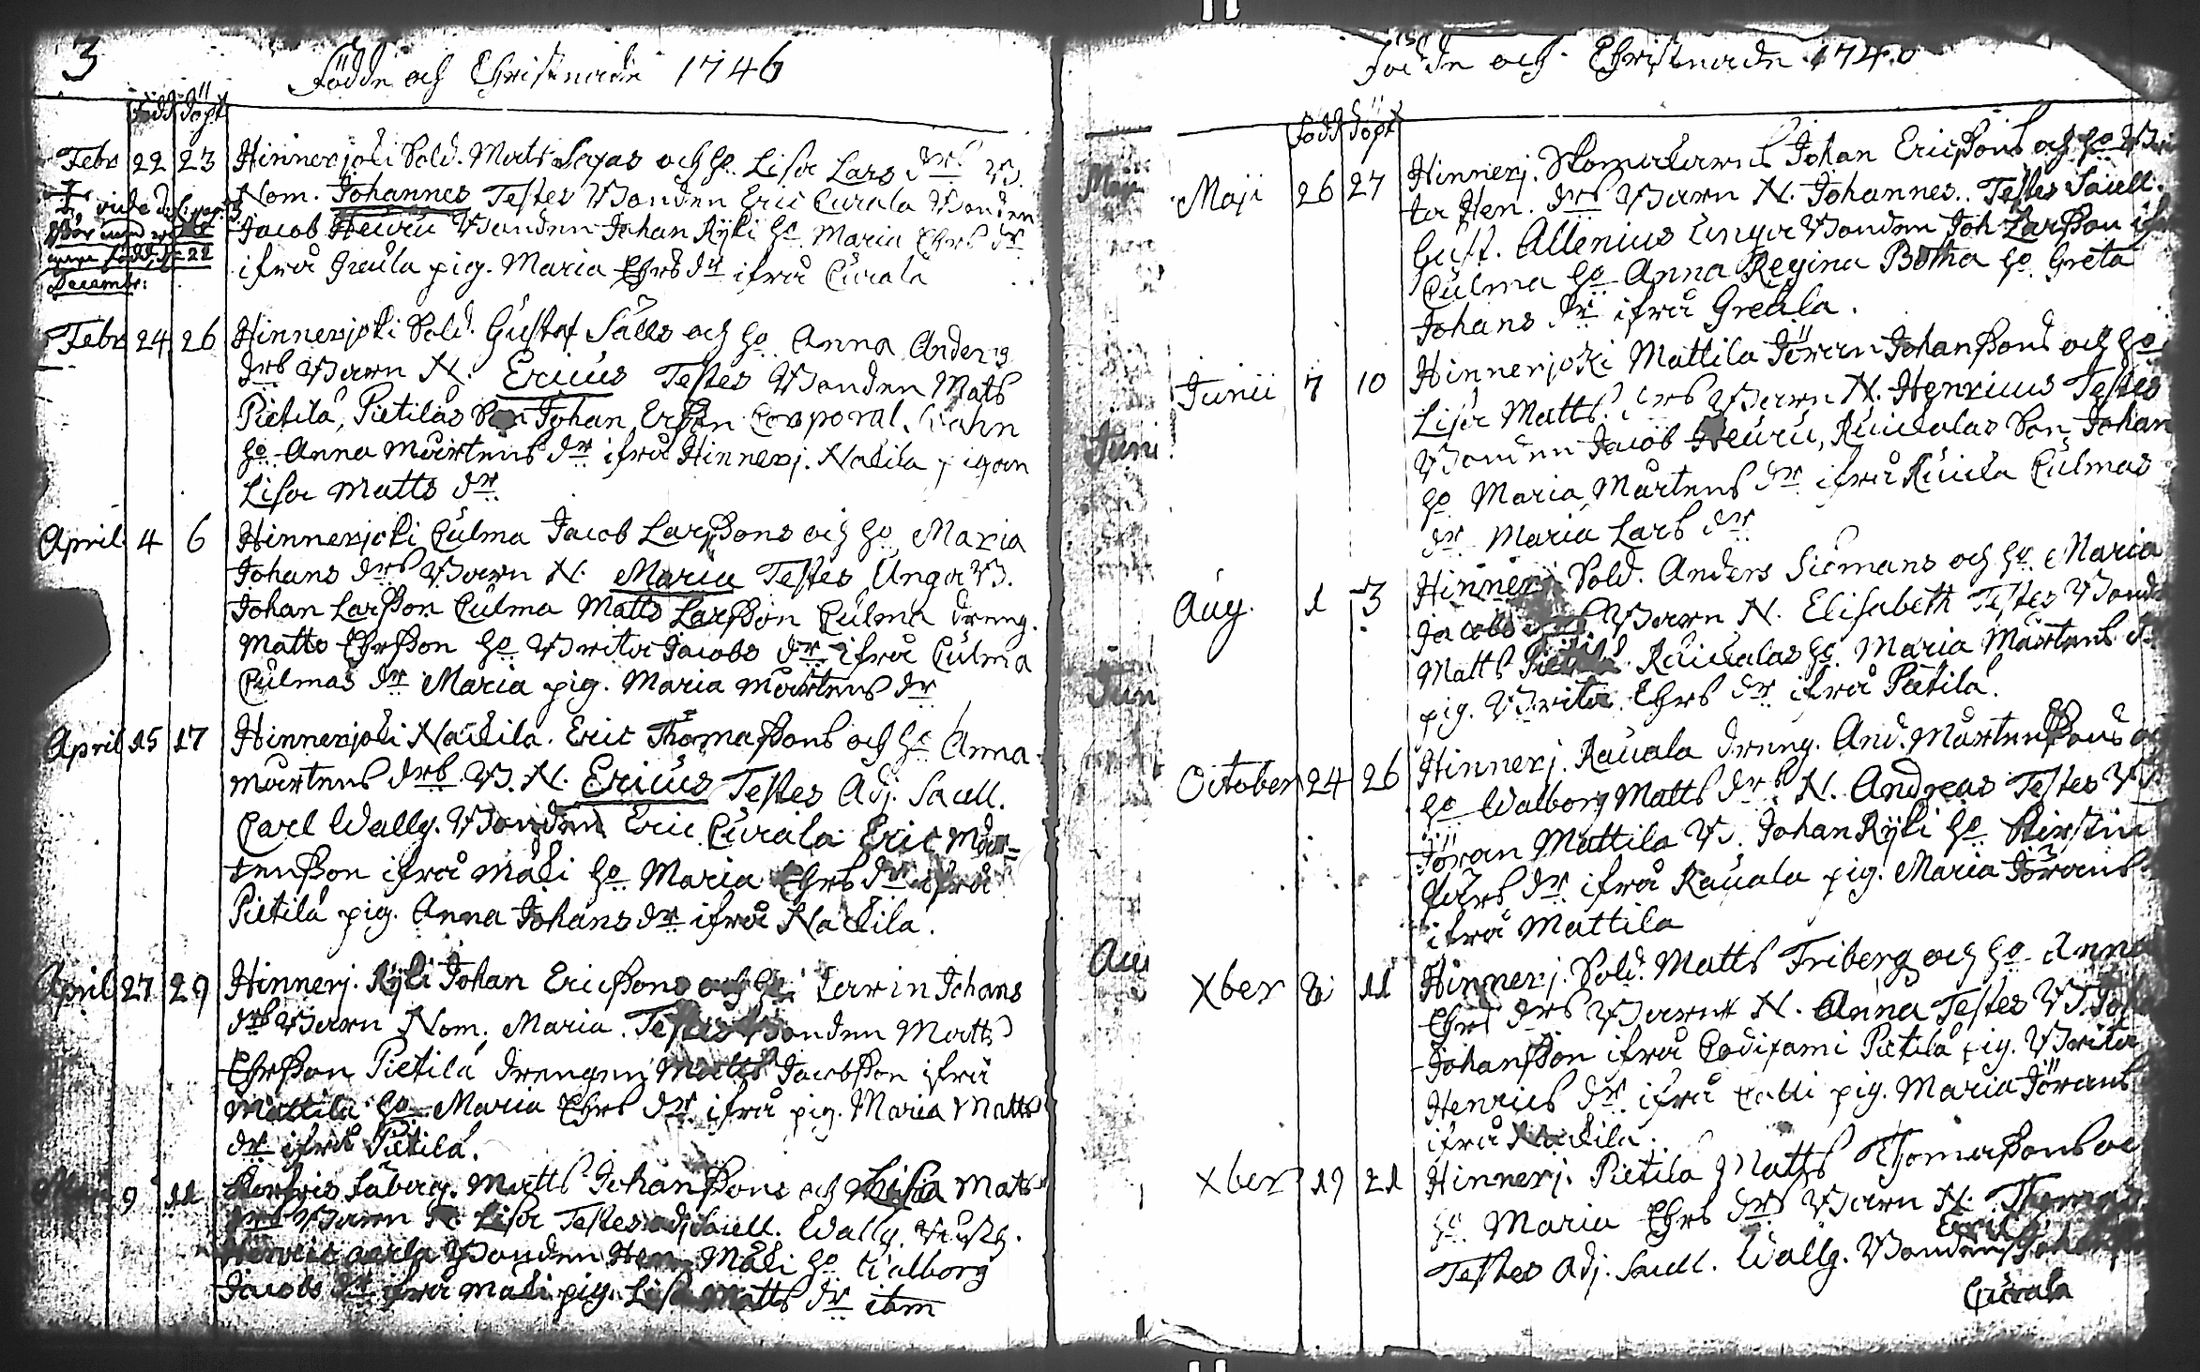 3
Födde och Christnade 1746
Född Döpt
Febr 22 23 Hinnerjoki Sold. Mats Sagas och ho. Lisa Lars drs B.
Nom. Johannes Testes Bonden Eric Curala Bonden
Jacob Heuru Bonden Johan Kyki ho. Maria Ehrs dr
ifrå pig. Maria Ehrs dr ifrå Curala
vide
född d. 22
Decembr:
Febr 24 26 Hinnerjoki Sold. Gustaf Sälls och ho. Anna Anders
drs Barn N. Ericus Testes Bonden Mats
Pietilä, Pietiläs Son Johan Ersson Corporal.
ho. Anna Mårtens dr ifrå Hinnerj. Nackila pigan
Lisa Matts dr
April 4 6 Hinnerjoki Culma Jacob Larssons och ho. Maria
Johans drs Barn N. Maria Testes Unga B.
Johan Larsson Culma Matts Larsson Culma dreng.
Matts Ehrsson ho. Brita Jacobs dr ifrå Culma
Culmas dr Maria pig. Maria Mårtens dr
April 15 17 Hinnerjoki Nackila. Eric Thomassons och ho. Anna
Mårtens drs B. N. Ericus Testes Adj. Sacell.
Carl Wallg. Bonden Eric Curala Eric Mår=
tensson ifrå Mäki ho. Maria Ehrs dr ifrå
Pietilä pig. Anna Johans dr ifrå Nackila.
April 27 29 Hinnerj. Kyki Johan Ericssons och ho. Carin Johans
drs Barn Nom. Maria. Testes Bonden Matts
Ehrsson Pietilä drengen Matts Jacobsson ifrå
Mattila ho. Maria Ehrs dr ifrå pig. Maria Matts
dr ifrå Pietilä.
9 11 Matts Johanssons och Lisa Mats
drs Barn N. Lisa Testes adj. Sacell. Wallg.
Bonden Hen. Mäki ho. Walborg
Jacobs dr ifrå Mäki pig. Lisa Matts dr ibm
Födde och Christnade 1746
Född Döpt
Maji 26 27 Hinnerj. Skomakarens Johan Ericssons och ho. Bri
ta Hen. drs Barn N. Johannes. Testes Sacell.
Gust. Allenius Unga Bonden Joh. Larsson ifrå
Culma ho. Anna Regina Botha ho. Greta
Johans dr ifrå Greula.
Junii 7 10 Hinnerjoki Mattila Jöran Johanssons och ho.
Lisa Matts drs Barn N. Henricus Testes
Bonden Jacob Heuru, Rauvalas Son Johan
ho. Maria Mårtens dr ifrå Culmas
dr Maria Lars dr
Aug. 1 3 Hinnerj. Sold. Anders Siemans och ho. Maria
Jacobs drs Barn N. Elisabeth Testes Bond.
Matts Pietilä. Rauvalas ho. Maria Mårtens dr
pig. Brita Ehrs dr ifrå Pietilä.
October 24 26 Hinnerj. Rauala dreng. And. Mårtenssons och
ho. Walborg Matts drs N. Andreas Testes B.
Jöran Mattila B. Johan Kyki ho. Kirstin
Lars dr ifrå Rauala pig. Maria Jörans
ifrå Mattila
Xber 8 11 Hinnerj. Sold. Matts Friberg och ho. Anna
Ehrs drs Barn N. Anna Testes B. Joh
Johansson ifrå Pietilä pig. Brita
Henrics dr ifrå pig. Maria Jörans
ifrå Nackila.
Xber 19 21 Hinnerj. Pietilä Matts Thomassons och
ho. Maria Ehrs drs Barn N. Thomas
Testes Adj. Sacell. Wallg. Bonden Eric
Curala